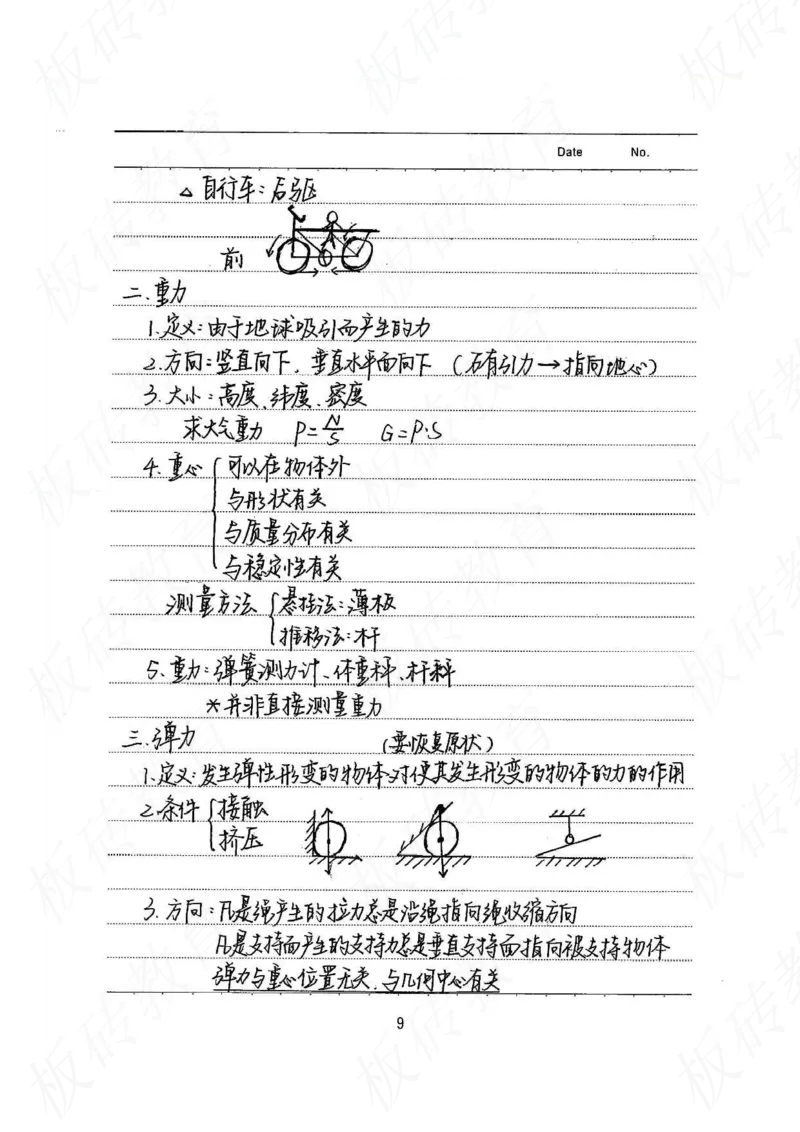 Date No.
△ 自行车：后驱
前
二.重力
1.定义：由于地球吸引而产生的力
2.方向：竖直向下，垂直水平面向下（万有引力→指向地心）
3.大小：高度、纬度、密度
求大气重力 P=N/S G=P·S
4.重心 { 可以在物体外
与形状有关
与质量分布有关
与稳定性有关
测量方法 { 悬挂法：薄板
推移法：杆
5.重力：弹簧测力计、体重秤、杆秤
*并非直接测量重力
三.弹力 (要恢复原状)
1.定义：发生弹性形变的物体对使其发生形变的物体的力的作用
2.条件 { 接触
挤压
3.方向：凡是绳产生的拉力总是沿绳指向绳收缩方向
凡是支持面产生的支持力总是垂直支持面指向被支持物体
弹力与重心位置无关，与几何中心有关
9
板砖教育